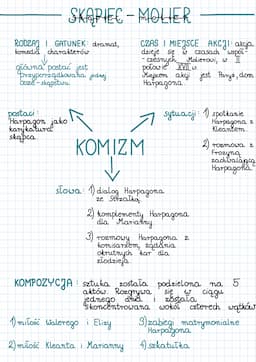 SKĄPIEC - MOLIER
RODZAJ I GATUNEK: dramat,
komedia charakterów
główna postać jest
przyporządkowana jednej
cesze-skąpstwu
CZAS I MIEJSCE AKCJI: akcja
dzieje się w czasach współ-
czesnych Molierowi, w II
połowie XVII w.
Miejscem akcji jest Paryż, dom
Harpagona.
postaci:
Harpagon jako
karykatura
skąpca.
sytuacji: 1) spotkanie
Harpagona z
Kleantem.
2) rozmowa z
Frozyną
zachwalającą
Harpagona.
KOMIZM
słowa: 1) dialog Harpagona
ze Strzałką
2) komplementy Harpagona
dla Marianny
3) rozmowy Harpagona z
komisarzem, żądania
okrutnych kar dla
złodzieja.
KOMPOZYCJA: sztuka została podzielona na 5
aktów. Rozgrywa się w ciągu
jednego dnia i została
skoncentrowana wokół czterech wątków
1) miłość Walerego i Elizy
3) zabiegi matrymonialne
Harpagona
2) miłość Kleanta i Marianny
4) szkatułka